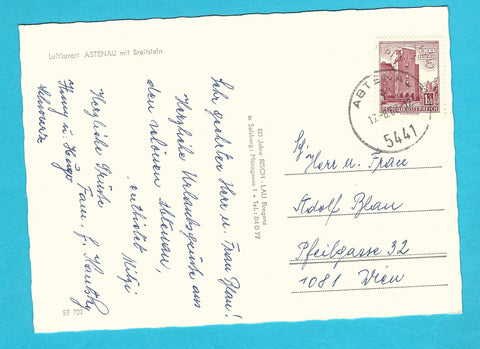 Luftkurort ABTENAU mit Breitstein
Sehr geehrter Herr u. Frau Blau!
Herzliche Urlaubsgrüße aus
dem schönen Abtenau,
entbietet Mitzi
Herzliche Grüße Fam. F.
Hansy u. Hugo
Schwarz
SE 702
60 Jahre RISCH-LAU Bregenz
in Salzburg: Nonngasse 1 • Tel.: 84 0 77
ABTENAU
5441
REPUBLIK ÖSTERREICH
Herrn u. Frau
Adolf Blau
Pfeilgasse 32
1081 Wien